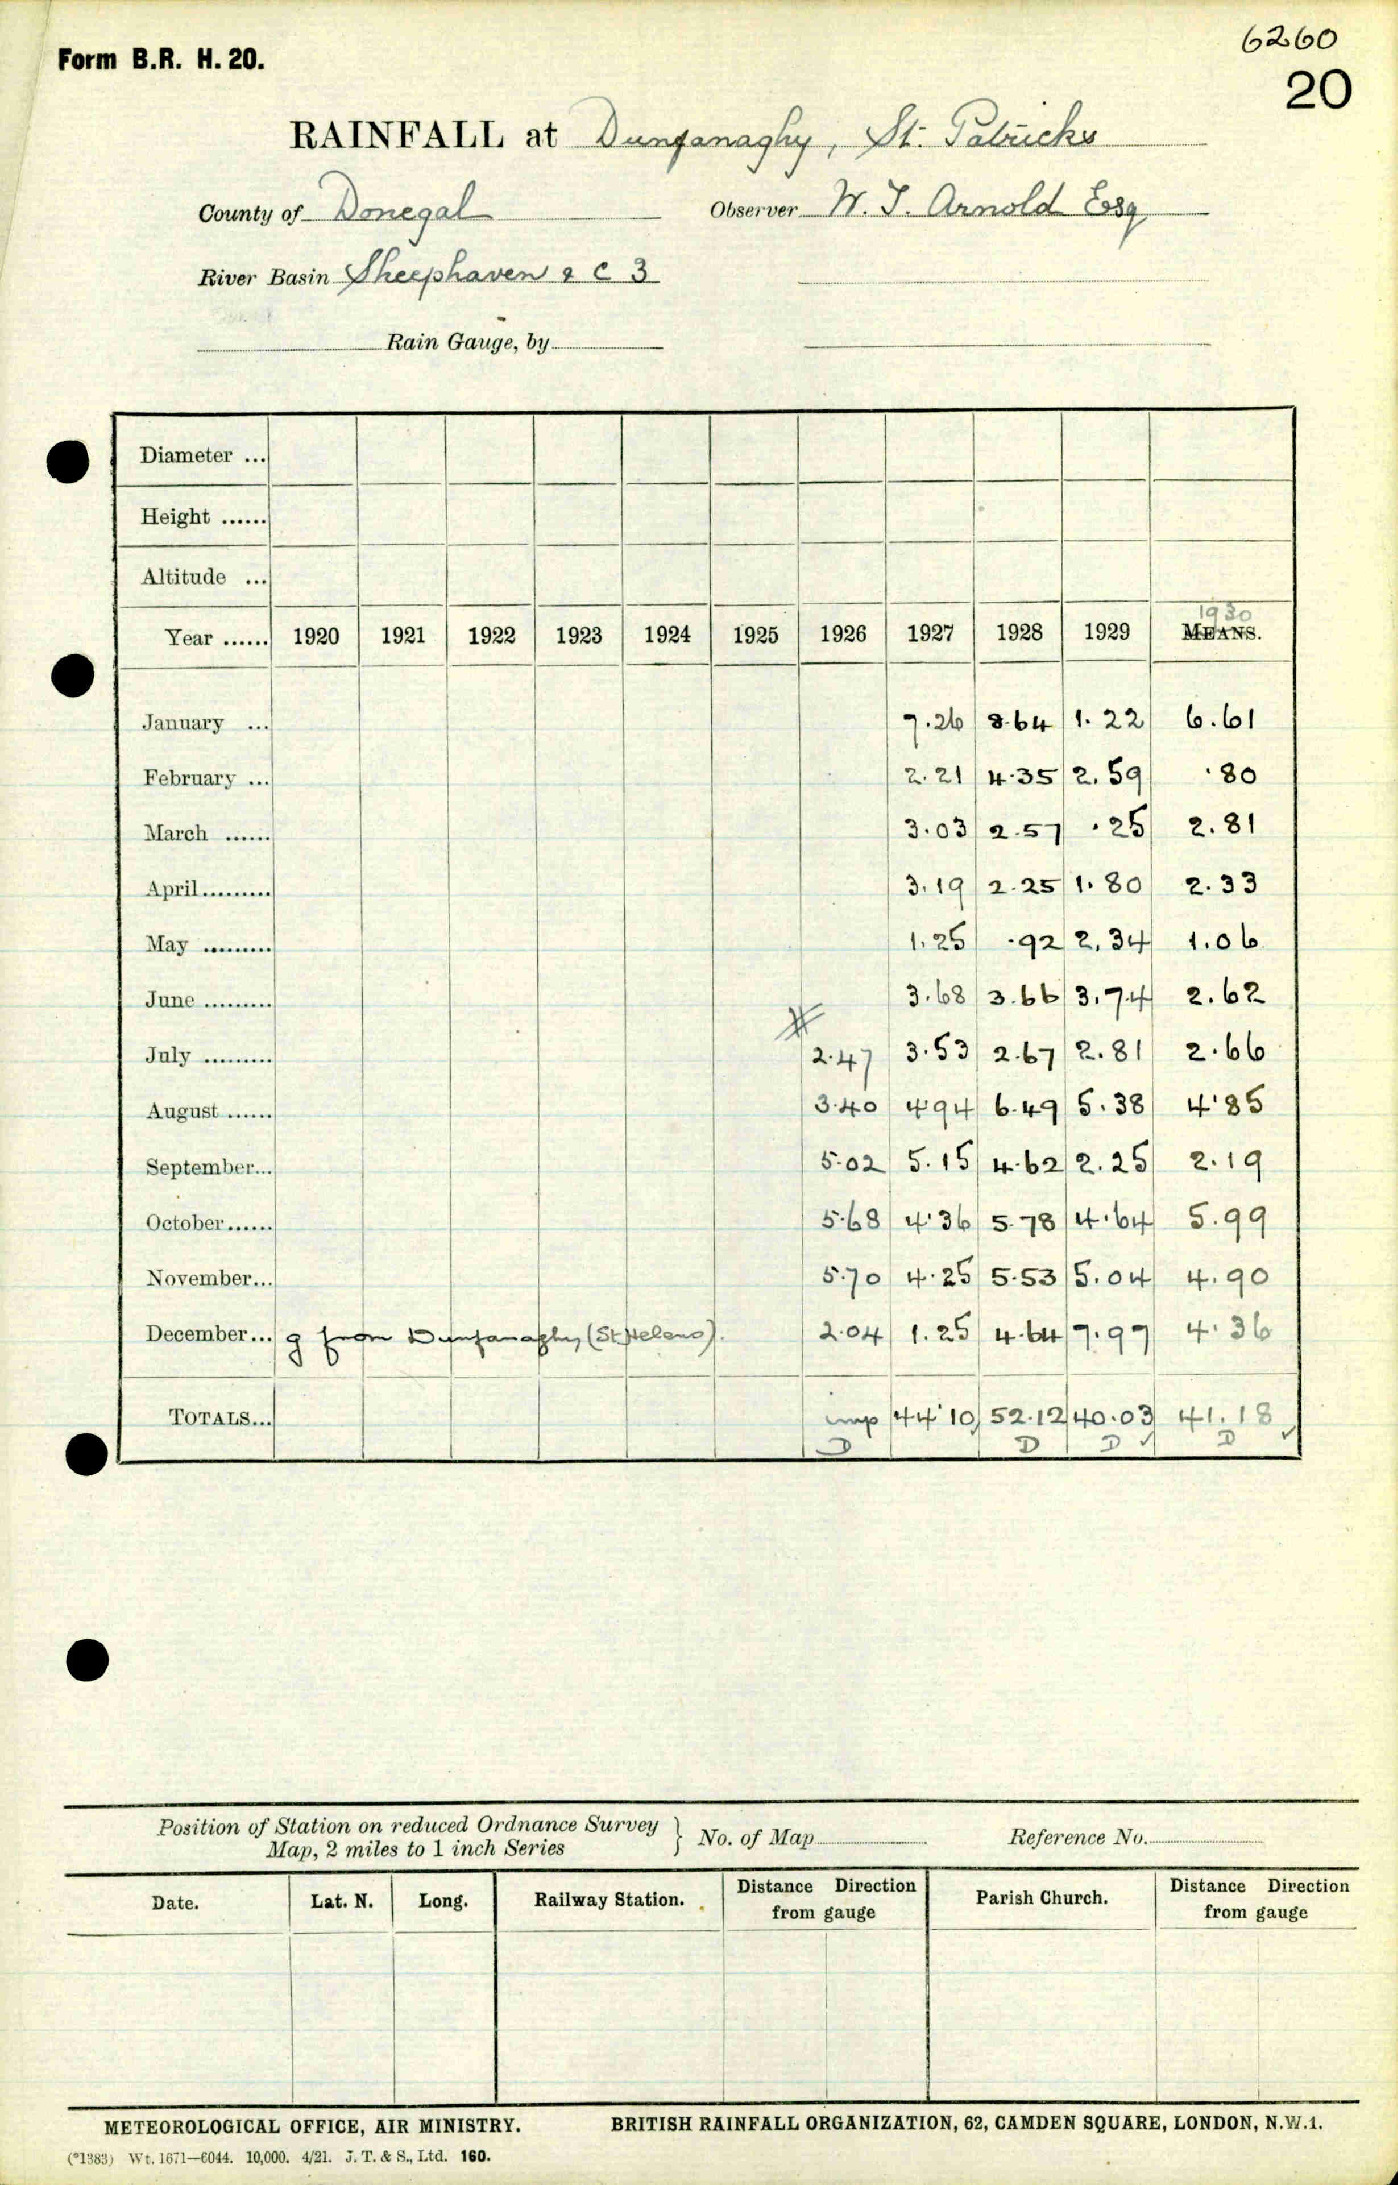 6260
Form B.R. H. 20.
20
RAINFALL at Dunfanaghy, St. Patricks
County of Donegal Observer W. J. Arnold Esq
River Basin Sheephaven & C 3
Rain Gauge, by
Diameter ...
Height ......
Altitude ...
1930
Year ...... 1920 1921 1922 1923 1924 1925 1926 1927 1928 1929 MEANS.
January ... 7.26 8.64 1.22 6.61
February ... 2.21 4.35 2.59 .80
March ...... 3.03 2.57 .25 2.81
April......... 3.19 2.25 1.80 2.33
May ......... 1.25 .92 2.34 1.06
June ......... 3.68 3.66 3.74 2.62
July ......... 2.47 3.53 2.67 2.81 2.66
August ...... 3.40 4.94 6.49 5.38 4.85
September... 5.02 5.15 4.62 2.25 2.19
October...... 5.68 4.36 5.78 4.64 5.99
November... 5.70 4.25 5.53 5.04 4.90
December... g from Dunfanaghy (St Helens). 2.04 1.25 4.64 7.97 4.36
TOTALS... imp 44.10 52.12 40.03 41.18
D D D ✓ D ✓
Position of Station on reduced Ordnance Survey
Map, 2 miles to 1 inch Series } No. of Map Reference No.
Date. Lat. N. Long. Railway Station. Distance Direction from gauge Parish Church. Distance Direction from gauge
METEOROLOGICAL OFFICE, AIR MINISTRY. BRITISH RAINFALL ORGANIZATION, 62, CAMDEN SQUARE, LONDON, N.W.1.
(*1383) Wt. 1671—6044. 10,000. 4/21. J. T. & S., Ltd. 160.